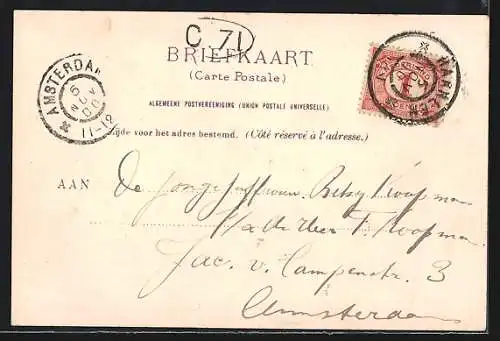 C 71
BRIEFKAART
(Carte Postale)
ALGEMEENE POSTVEREENIGING (UNION POSTALE UNIVERSELLE)
ijde voor het adres bestemd. (Côté réservé à l'adresse.)
AMSTERDA
5
NOV
00
11-12
HAARLEM
AAN
De Jonge Juffrouw Betsy Koopman
F. Koopman
Jac. v. Campenstr. 3
Amsterdam